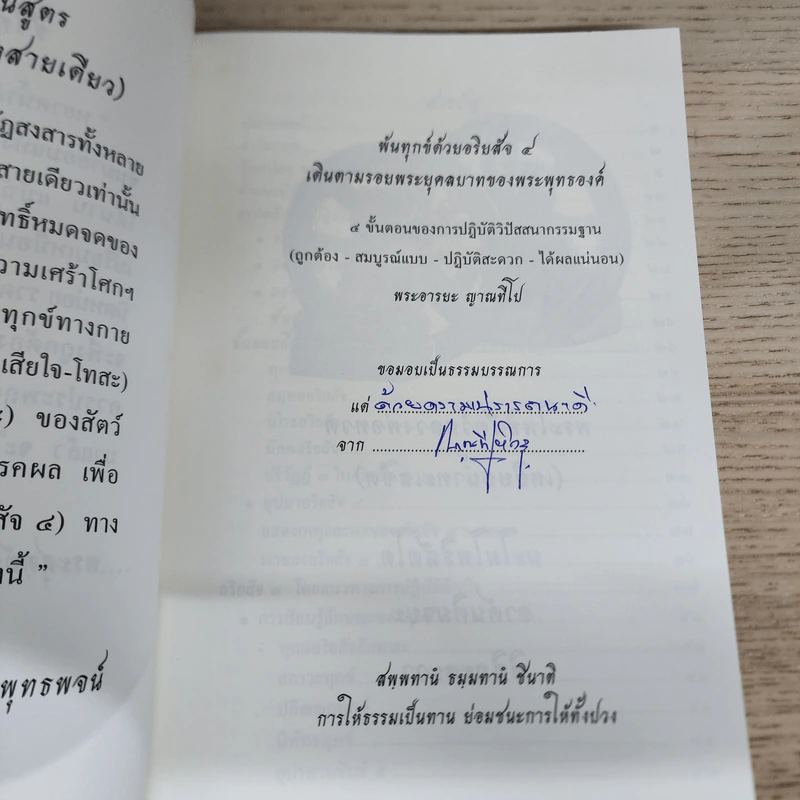 นสูตร
สายเดียว)
ัฏสงสารทั้งหลาย
สายเดียวเท่านั้น
ทธิ์หมดจดของ
วามเศร้าโศกฯ
ทุกข์ทางกาย
เสียใจ-โทสะ)
) ของสัตว์
รคผล เพื่อ
สัจ ๔) ทาง
นี้ ”
พุทธพจน์
พ้นทุกข์ด้วยอริยสัจ ๔
เดินตามรอยพระยุคลบาทของพระพุทธองค์
๔ ขั้นตอนของการปฏิบัติวิปัสสนากรรมฐาน
(ถูกต้อง - สมบูรณ์แบบ - ปฏิบัติสะดวก - ได้ผลแน่นอน)
พระอารยะ ญาณทีโป
ขอมอบเป็นธรรมบรรณการ
แด่ ด้วยความปรารถนาดี
จาก
สพฺพทานํ ธมฺมทานํ ชินาติ
การให้ธรรมเป็นทาน ย่อมชนะการให้ทั้งปวง